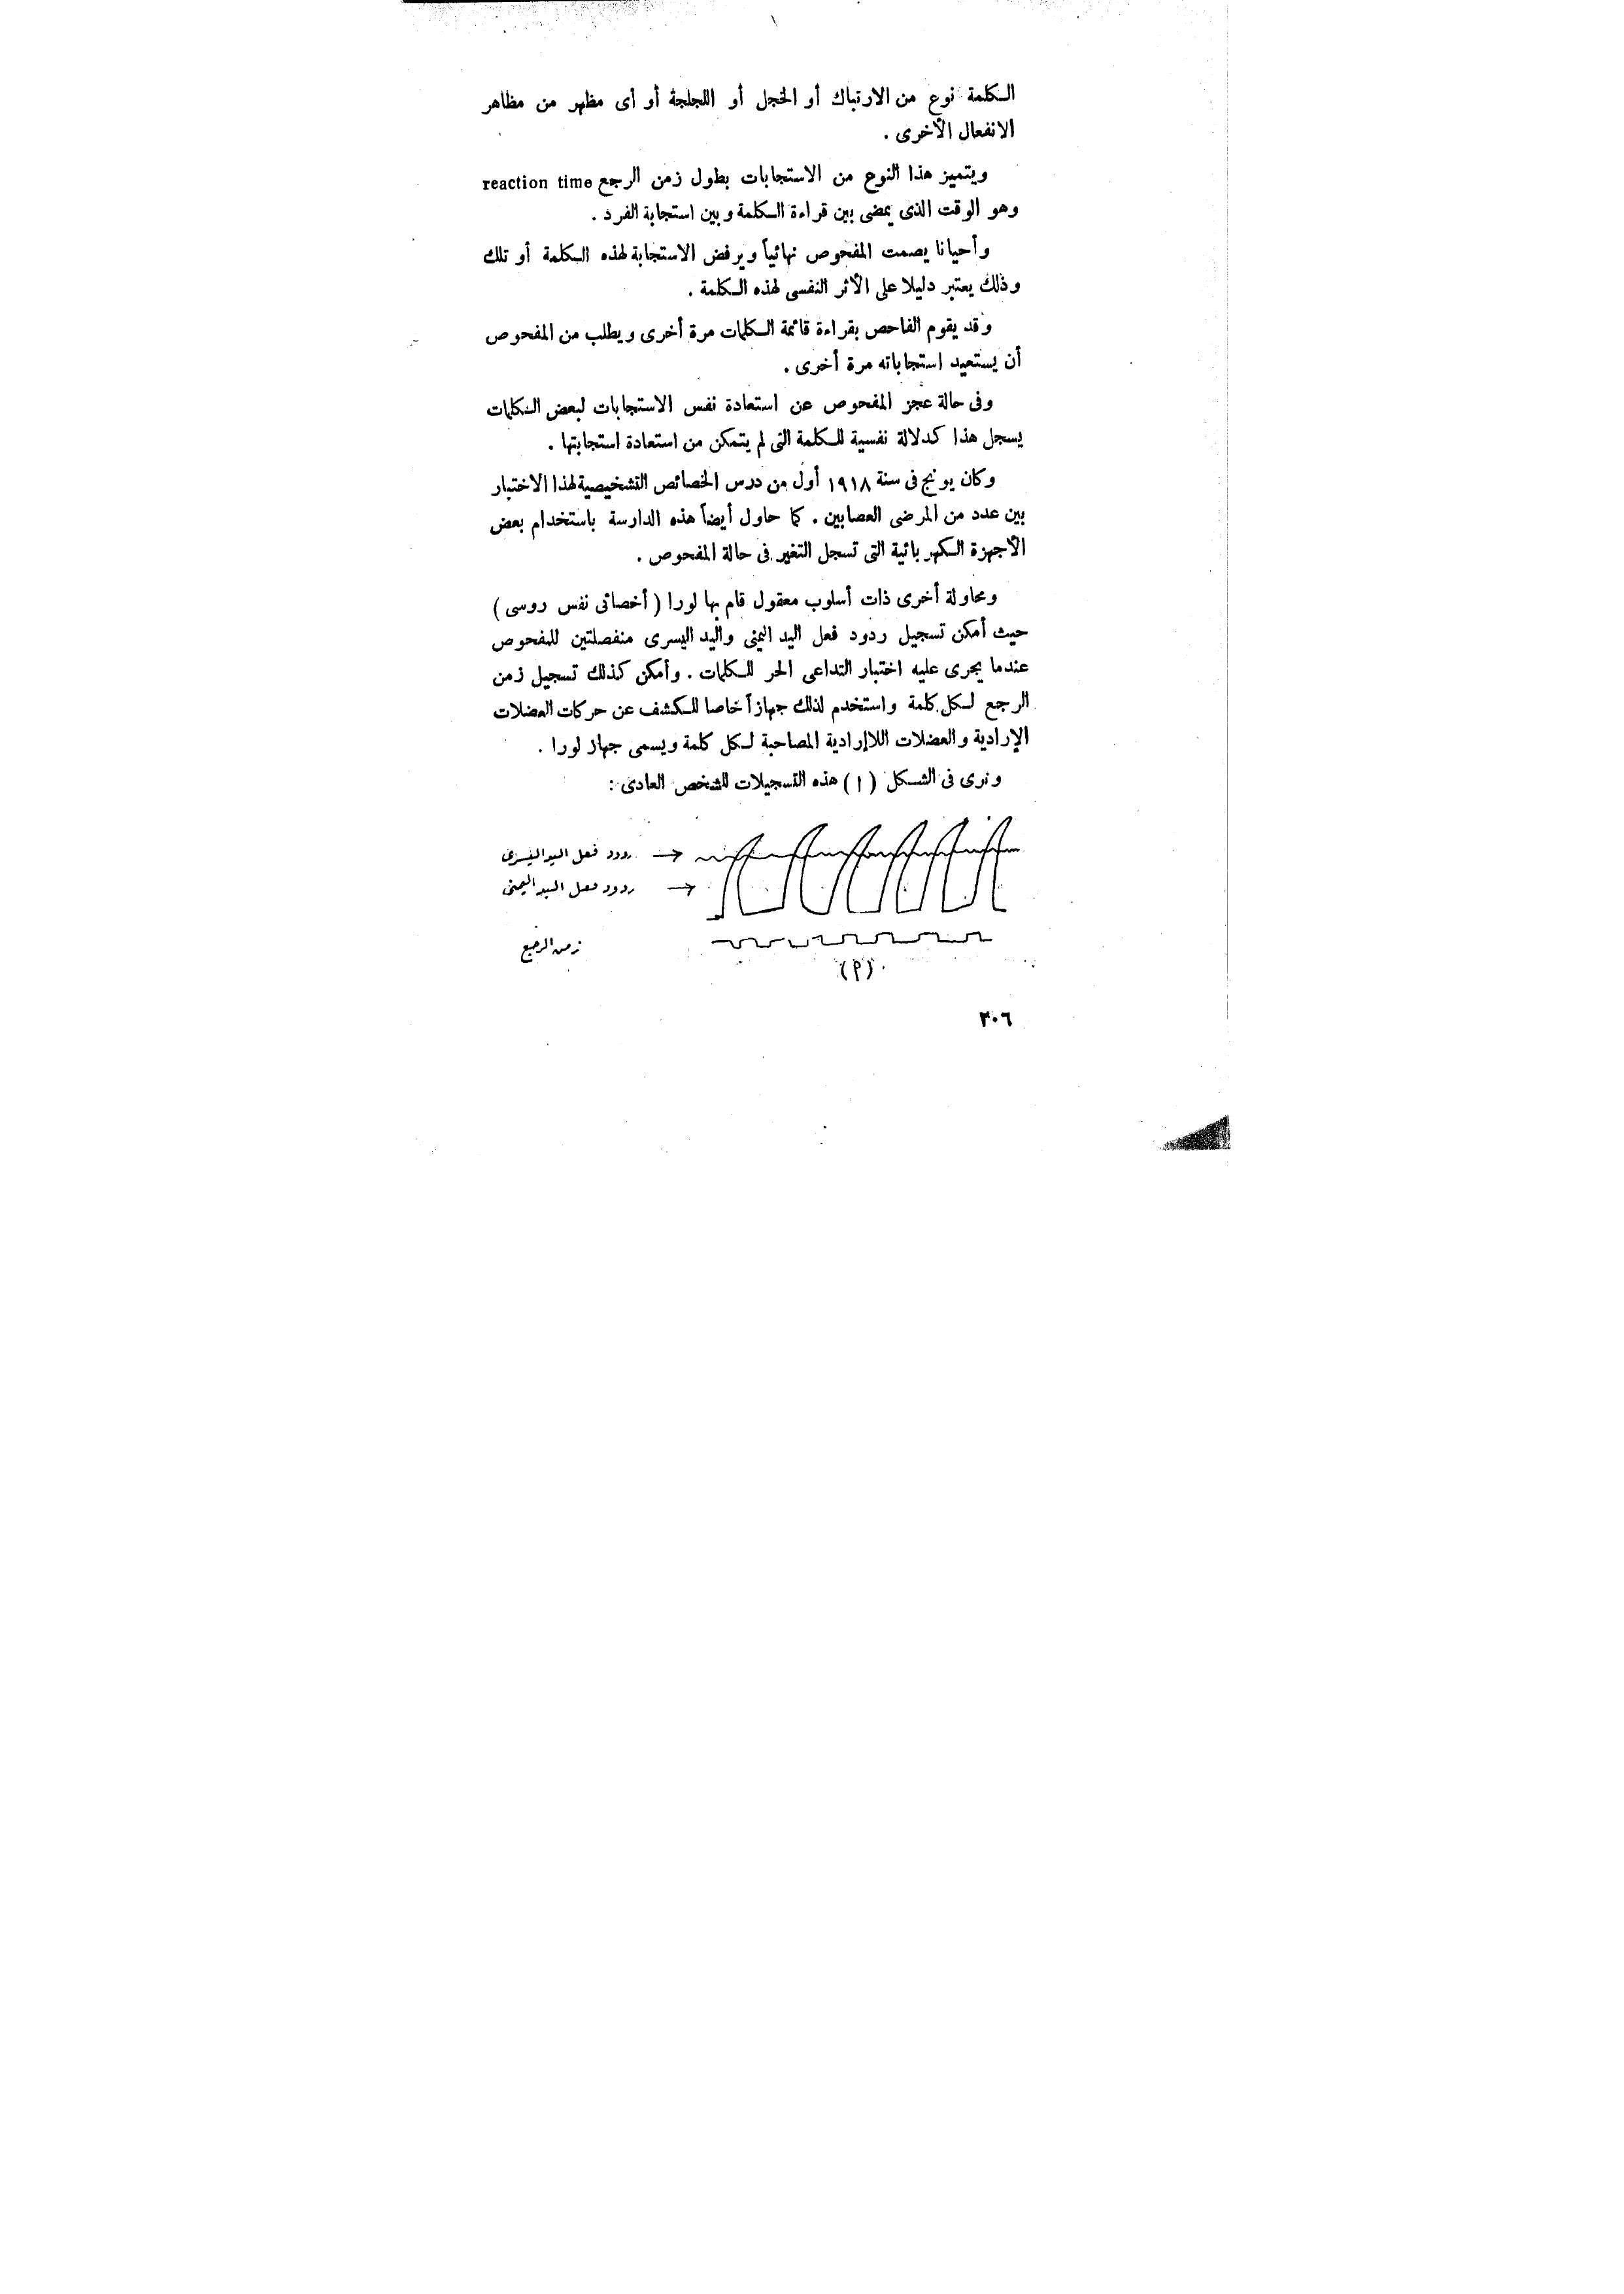 الكلمة نوع من الارتباك أو الخجل أو اللجلجة أو أى مظهر من مظاهر
الانفعال الأخرى .
ويتميز هذا النوع من الاستجابات بطول زمن الرجع reaction time
وهو الوقت الذى يمضى بين قراءة الكلمة وبين استجابة الفرد .
وأحيانا يصمت المفحوص نهائياً ويرفض الاستجابة لهذه الكلمة أو تلك
وذلك يعتبر دليلا على الأثر النفسى لهذه الكلمة .
وقد يقوم الفاحص بقراءة قائمة الكلمات مرة أخرى ويطلب من المفحوص
أن يستعيد استجاباته مرة أخرى .
وفى حالة عجز المفحوص عن استعادة نفس الاستجابات لبعض الكلمات
يسجل هذا كدلالة نفسية للكلمة التى لم يتمكن من استعادة استجابتها .
وكان يونج فى سنة ١٩١٨ أول من درس الخصائص التشخيصية لهذا الاختبار
بين عدد من المرضى العصابين . كما حاول أيضاً هذه الدارسة باستخدام بعض
الأجهزة الكهربائية التى تسجل التغير فى حالة المفحوص .
ومحاولة أخرى ذات أسلوب معقول قام بها لورا ( أخصائى نفس روسى )
حيث أمكن تسجيل ردود فعل اليد اليمنى واليد اليسرى منفصلتين للمفحوص
عندما يجرى عليه اختبار التداعى الحر للكلمات . وأمكن كذلك تسجيل زمن
الرجع لكل كلمة واستخدم لذلك جهازاً خاصا للكشف عن حركات العضلات
الإرادية والعضلات اللاإرادية المصاحبة لكل كلمة ويسمى جهاز لورا .
ونرى فى الشكل ( ا ) هذه التسجيلات للشخص العادى :
ردود فعل اليد اليسرى
ردود فعل اليد اليمنى
زمن الرجع
(م)
٣٠٦